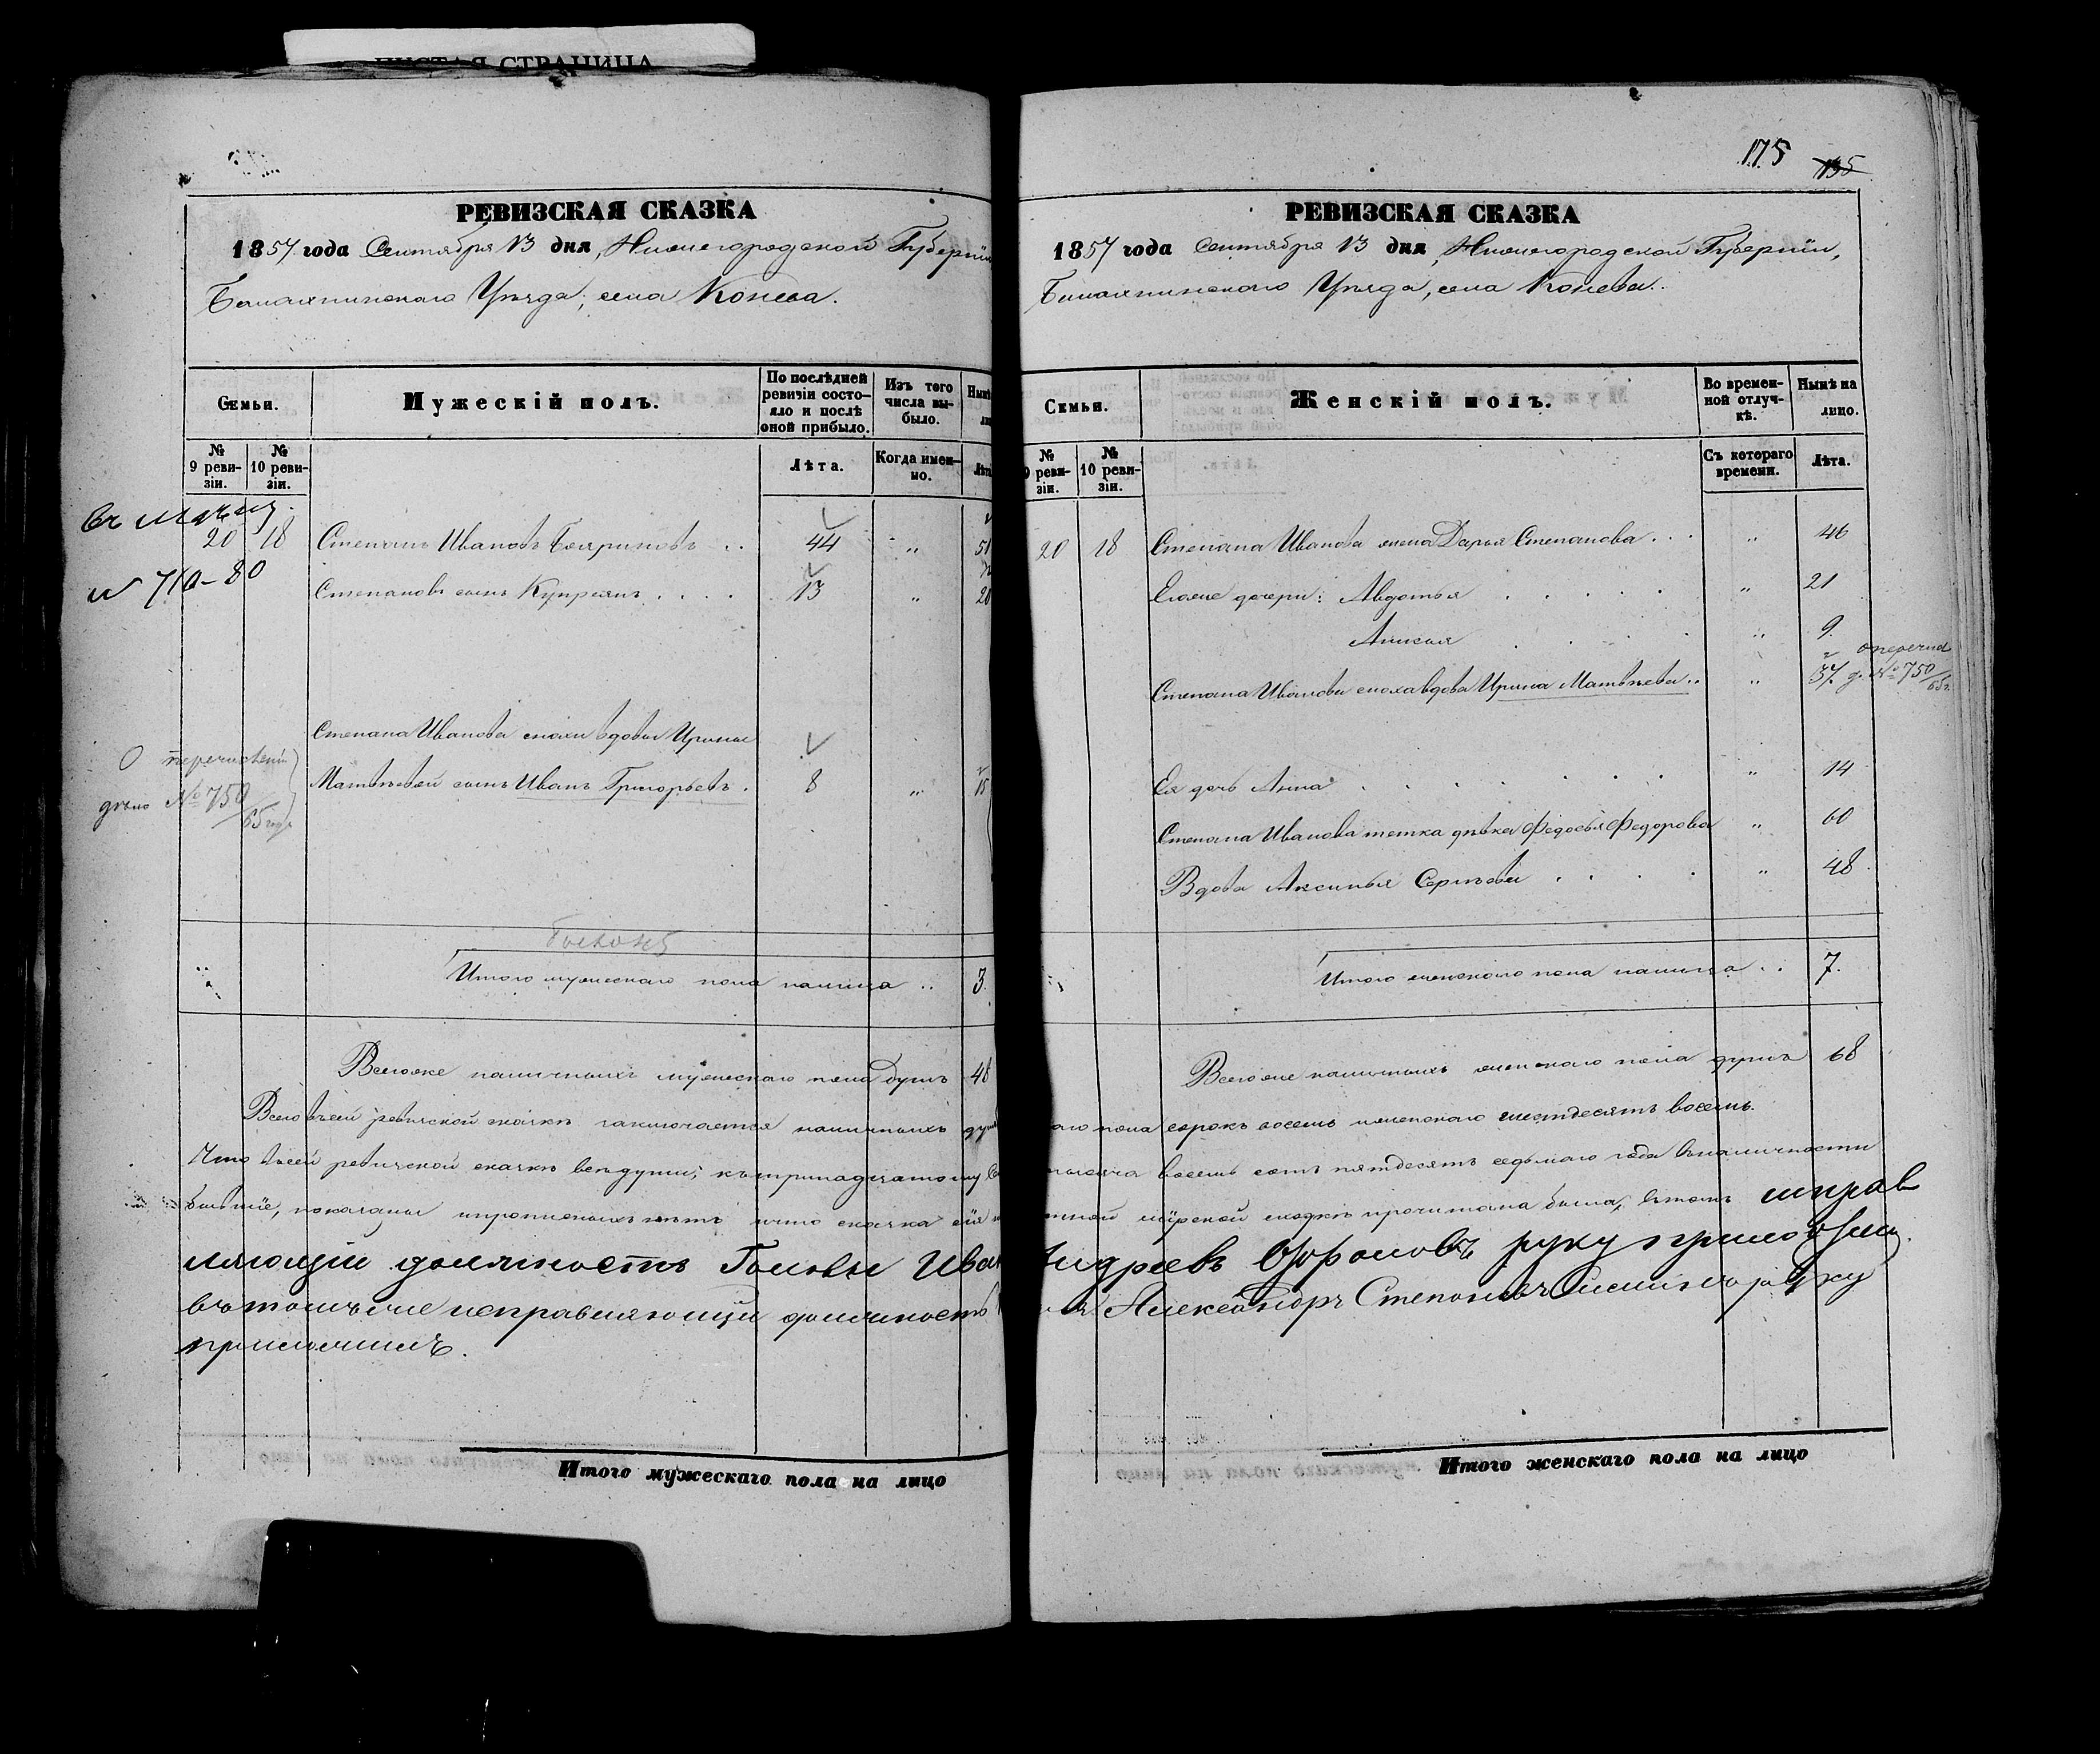 ЧИСТАЯ СТРАНИЦА
РЕВИЗСКАЯ СКАЗКА
1857 года Сентября 13 дня, Нижегородской Губерніи
Балахнинскаго Уѣзда, села Конева.
Семьи.
Мужескій полъ.
По послѣдней ревизіи состояло и послѣ оной прибыло.
Изъ того числа выбыло.
Нынѣ
№ 9 ревизіи.
№ 10 ревизіи.
Лѣта.
Когда именно.
Лѣта
20 18 Степанъ Ивановъ Бояриновъ . . 44 „ 51
№ 710-80
Степановъ сынъ Купреянъ . . . . 13 „ 20
Степана Иванова снохи вдовы Ирины
О перечисленіи
Матвѣевой сынъ Иванъ Григорьевъ . 8 „ 15
дѣло № 750/65 года
Итого мужескаго пола налицо . . 3.
Всегоже наличныхъ мужескаго пола душъ 48
Всего въ сей ревизской сказкѣ заключается наличныхъ душъ
Что въ сей ревизской сказкѣ всѣ души, къ тринадцатому
бывшіе, показаны и что сказка сія
ляющій должность Головы Иван
въ томъ же исправляющій должность
приложилъ.
Итого мужескаго пола на лицо
175 135
РЕВИЗСКАЯ СКАЗКА
1857 года Сентября 13 дня, Нижегородской Губерніи,
Балахнинскаго Уѣзда, села Конева.
Семьи.
Женскій полъ.
Во временной отлучкѣ.
Нынѣ на лицо.
9 ревизіи.
№ 10 ревизіи.
Съ котораго времени.
Лѣта.
20 18 Степана Иванова жена Дарья Степанова . . . „ 46
Егоже дочери: Авдотья . . . . . „ 21
Анисья . . . „ 9.
Степана Иванова сноха вдова Ирина Матвѣева . . „ 37. д. № 750/65г.
Ея дочь Анна . . . . . . „ 14
Степана Иванова тетка дѣвка Федосья Федорова „ 60
Вдова Аксинья Сергѣева . . . . „ 48.
Итого женскаго пола налицо . . 7.
Всегоже наличныхъ женскаго пола душъ 68
пола сорокъ восемь женскаго шестдесятъ восемь.
тысяча восемь сотъ пятдесятъ седьмаго года въ наличности
мірской сходкѣ прочитана была, въ томъ исправ
Андреевъ руку приложилъ.
Александръ Степановъ руку
Итого женскаго пола на лицо